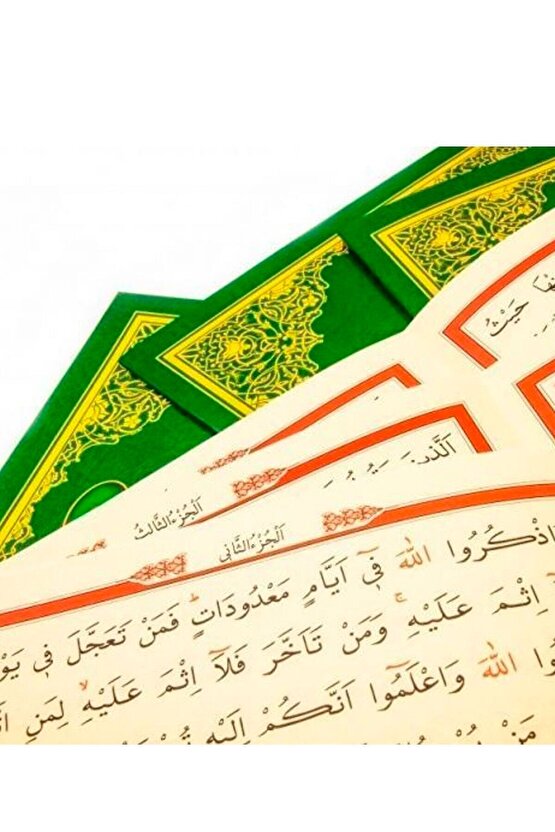 حَيْثُ
اَلْجُزْءُ الثَّالِثُ
اَلْجُزْءُ الثَّانٖى
اذْكُرُوا اللّٰهَ فٖٓى اَيَّامٍ مَعْدُودَاتٍ فَمَنْ تَعَجَّلَ فٖى
اِثْمَ عَلَيْهِ وَمَنْ تَاَخَّرَ فَلَٓا اِثْمَ عَلَيْهِ لِمَنِ
اللّٰهَ وَاعْلَمُٓوا اَنَّكُمْ اِلَيْهِ